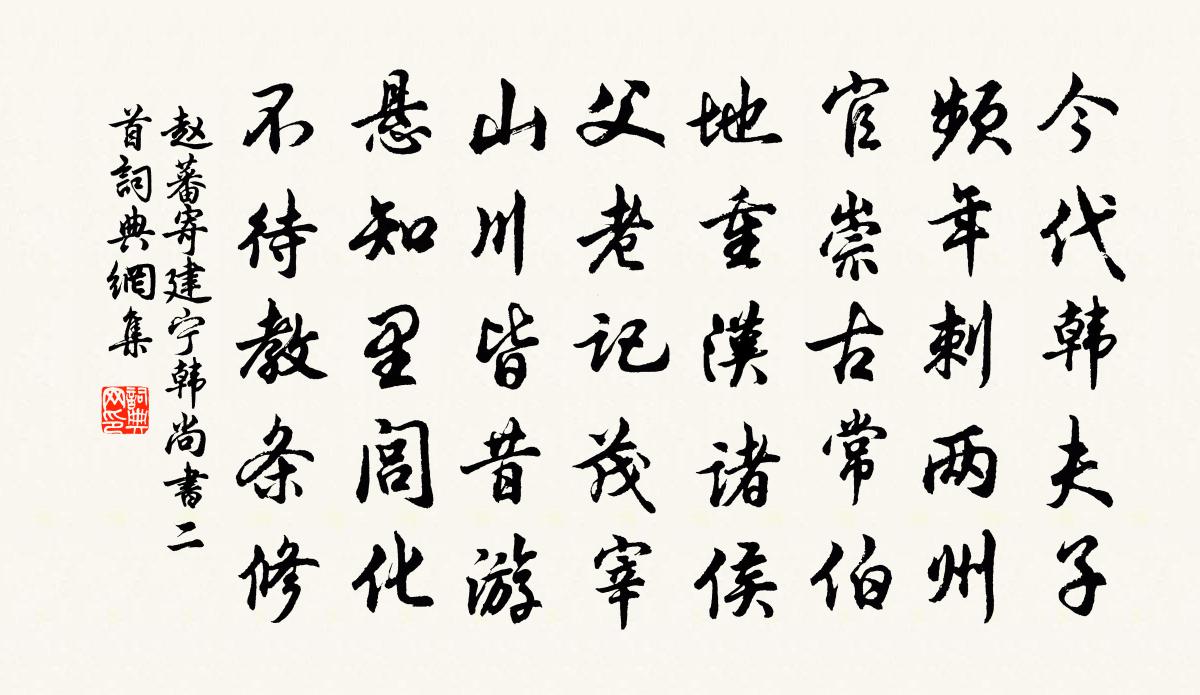 今代韩夫子
频年刺两州
官崇古常伯
地重汉诸侯
父老记茂宰
山川皆昔游
悬知里闾化
不待教条修
赵蕃寄建宁韩尚书二
首詞典網集
詞典
网印